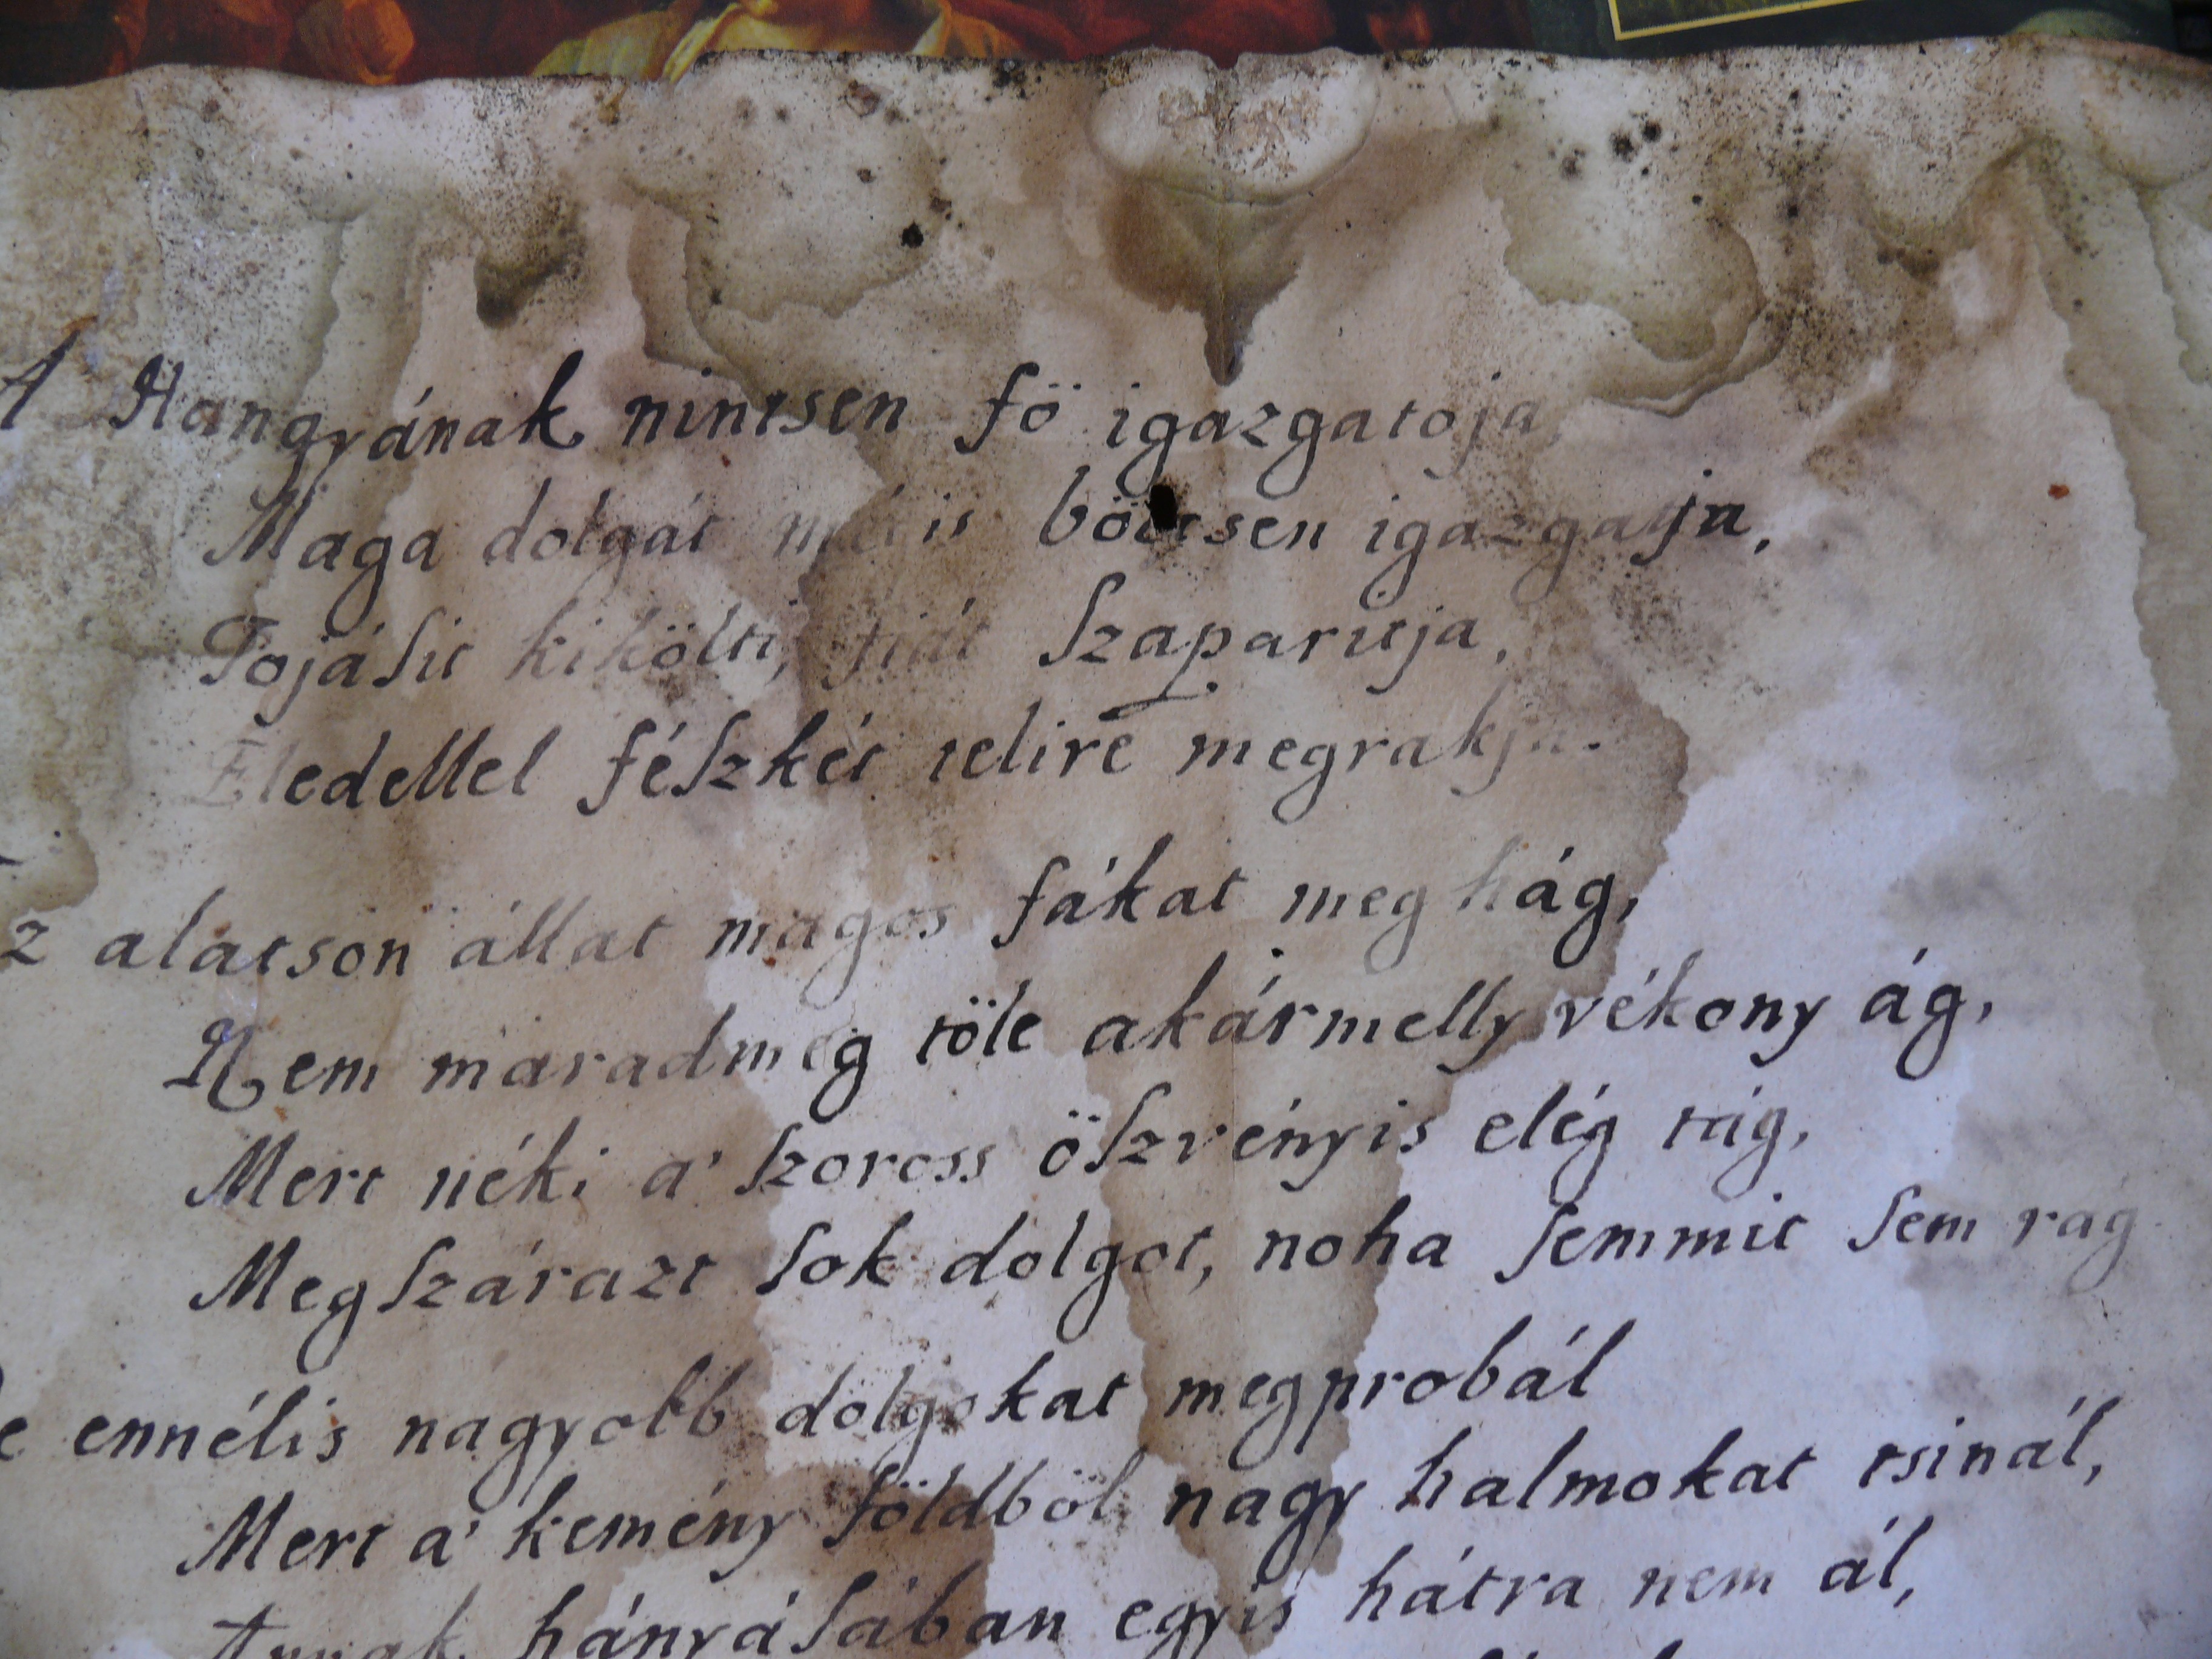 A Hangyának nintsen fö igazgatoja
Maga dolgát mégis böltsen igazgatja,
Tojásit kikölti, fiát szaparitja,
Eledellel fészkét teliré megrakja.
z alatson állat magos fákat meg hág,
Nem marad meg töle akármelly vékony ág,
Mert néki a' szoross öszvényis elég tág,
Meg szárazt sok dolgot, noha semmit sem rag
e ennélis nagyobb dolgokat megprobál
Mert a' kemény földböl nagy halmokat tsinál,
hányásában egyis hátra nem ál,